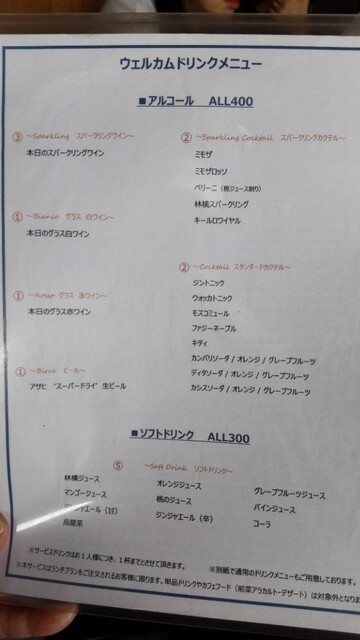 ウェルカムドリンクメニュー
■アルコール ALL400
③ ~Sparkling スパークリングワイン~
本日のスパークリングワイン
① ~Bianco グラス 白ワイン~
本日のグラス白ワイン
① ~Rosso グラス 赤ワイン~
本日のグラス赤ワイン
① ~Birra ビール~
アサヒ 'スーパードライ' 生ビール
② ~Sparkling Cocktail スパークリングカクテル~
ミモザ
ミモザロッソ
ベリーニ (桃ジュース割り)
林檎スパークリング
キールロワイヤル
② ~Cocktail スタンダードカクテル~
ジントニック
ウォッカトニック
モスコミュール
ファジーネーブル
キティ
カンパリソーダ / オレンジ / グレープフルーツ
ディタソーダ / オレンジ / グレープフルーツ
カシスソーダ / オレンジ / グレープフルーツ
■ソフトドリンク ALL300
⑤ ~Soft Drink ソフトドリンク~
林檎ジュース
オレンジジュース
グレープフルーツジュース
マンゴージュース
桃のジュース
パインジュース
ジンジャエール(甘)
ジンジャエール(辛)
コーラ
烏龍茶
※サービスドリンクはお1人様につき、1杯までとさせて頂きます。
※別紙で通常のドリンクメニューもご用意しております。
※本サービスはランチプランをご注文されるお客様に限ります。単品ドリンクやカフェフード(前菜アラカルト・デザート)は対象外となりま